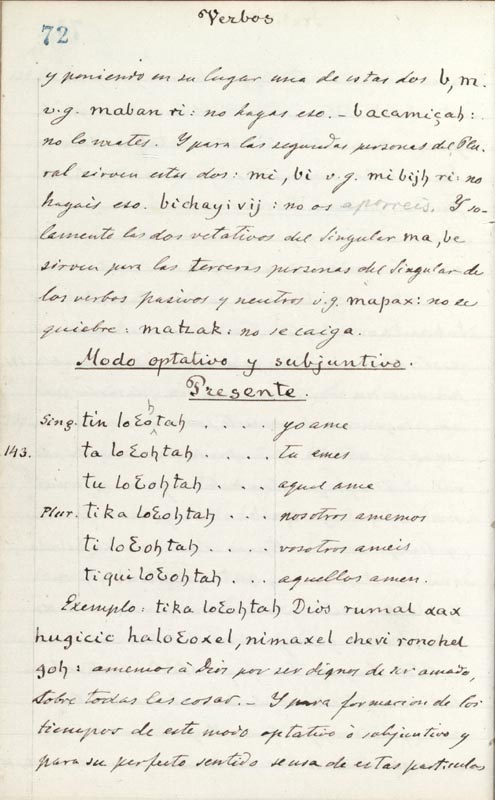 Verbos
72
y poniendo en su lugar una de estas dos b, m.
v.g. maban ri: no hagas eso. - bacamiçaɧ:
no lo mates. Y para las segundas personas del Plu-
ral sirven estas dos: mi, bi v.g. mibijɧ ri: no
hagais eso. bichayivij: no os aporreis. Y so-
lamente las dos vetativos del Singular ma, be
sirven para las terceras personas del Singular de
los verbos pasivos y neutros v.g. mapax: no se
quiebre: matzak: no se caiga.
Modo optativo y subjuntivo.
Presente.
Sing. tin loƐoɧtaɧ .... yo ame
143. ta loƐoɧtaɧ .... tu ames
tu loƐoɧtaɧ ... aquel ame
Plur. tika loƐoɧtaɧ ... nosotros amemos
ti loƐoɧtaɧ ... vosotros ameis
tiqui loƐoɧtaɧ ... aquellos amen.
Exemplo: tika loƐoɧtaɧ Dios rumal xax
hugicic haloƐoxel, nimaxel chevi ronohel
goɧ: amemos à Dios por ser dignos de ser amado,
sobre todas las cosas. - Y para formacion de los
tiempos de este modo optativo ò subjuntivo y
para su perfecto sentido se usa de estas particulas